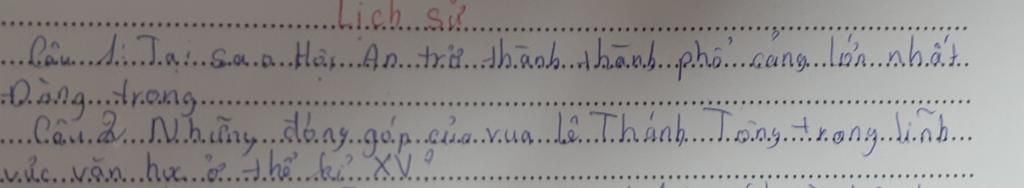 Lịch sử
Câu 1: Tại sao Hội An trở thành thành phố cảng lớn nhất
Đàng trong
Câu 2 Những đóng góp của vua Lê Thánh Tông trong lĩnh
vực văn học ở thế kỉ XV?